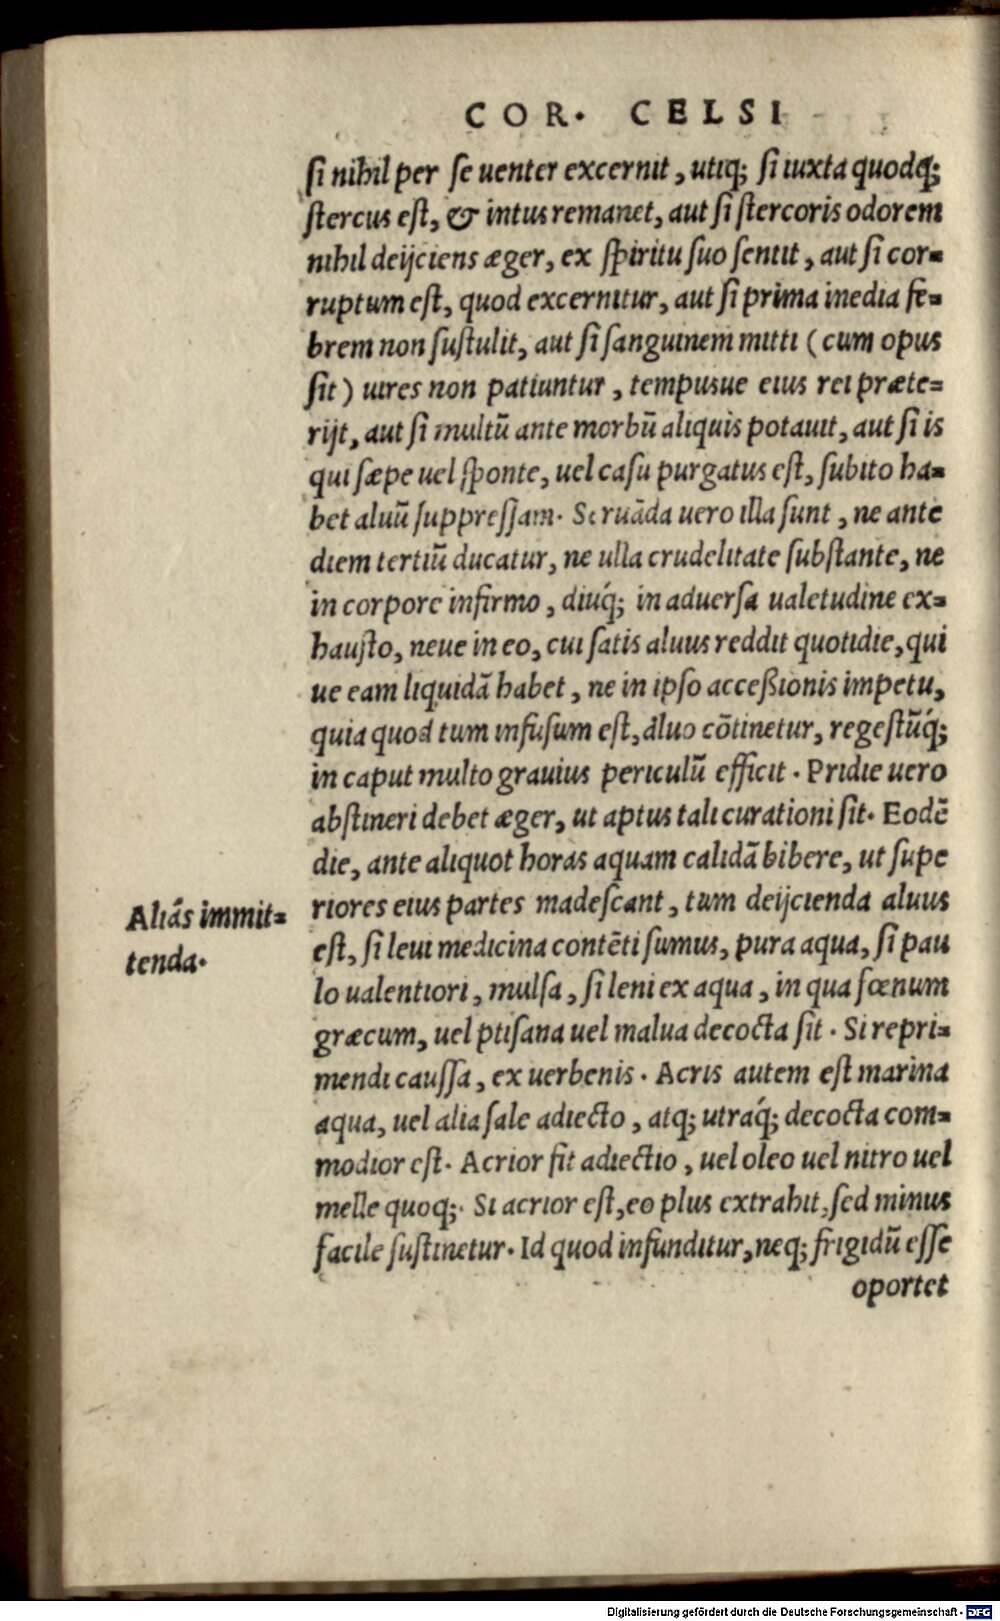 COR. CELSI
si nihil per se uenter excernit, utiq; si iuxta quodq́;
stercus est, & intus remanet, aut si stercoris odorem
nihil deijciens æger, ex spiritu suo sentit, aut si cor=
ruptum est, quod excernitur, aut si prima inedia fe=
brem non sustulit, aut si sanguinem mitti (cum opus
sit) uires non patiuntur, tempusue eius rei præte=
rijt, aut si multũ ante morbũ aliquis potauit, aut si is
qui sæpe uel sponte, uel casu purgatus est, subito ha=
bet aluũ suppressam. Seruãda uero illa sunt, ne ante
diem tertiũ ducatur, ne ulla crudelitate substante, ne
in corpore infirmo, diuq́; in aduersa ualetudine ex=
hausto, neue in eo, cui satis aluus reddit quotidie, qui
ue eam liquidã habet, ne in ipso accessionis impetu,
quia quod tum infusum est, aluo cõtinetur, regestũq́;
in caput multo grauius periculũ efficit. Pridie uero
abstineri debet æger, ut aptus tali curationi sit. Eodẽ
die, ante aliquot horas aquam calidã bibere, ut supe
riores eius partes madescant, tum deijcienda aluus
Aliás immit=
tenda.
est, si leui medicina contẽti sumus, pura aqua, si pau
lo ualentiori, mulsa, si leni ex aqua, in qua fœnum
græcum, uel ptisana uel malua decocta sit. Si repri=
mendi caussa, ex uerbenis. Acris autem est marina
aqua, uel alia sale adiecto, atq; utraq́; decocta com=
modior est. Acrior fit adiectio, uel oleo uel nitro uel
melle quoq;. Si acrior est, eo plus extrahit, sed minus
facile sustinetur. Id quod infunditur, neq; frigidũ esse
oportet
Digitalisierung gefördert durch die Deutsche Forschungsgemeinschaft - DFG